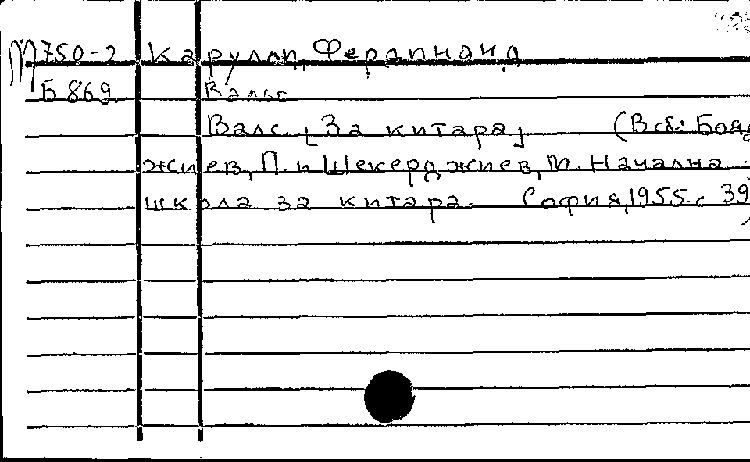 М750-2 Карулли, Фердинанд
Б 869 Вальс
Валс. [За китара] (В сб.: Бояд
жиев, П. и Шекерджиев, М. Начална
школа за китара. София, 1955. с 39